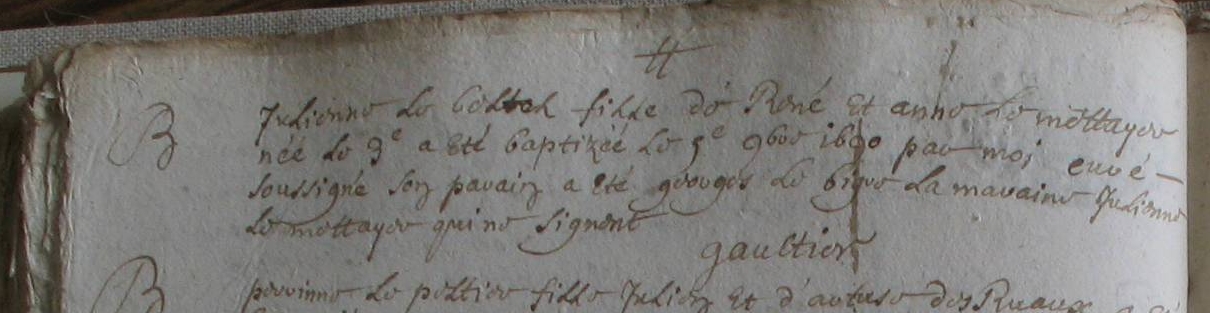 B
Julienne Le fille de René Et anne Le mettayer
née Le 3e a Eté baptizéé Le 5e 9bre 1690 par moi curé -
soussigné son parain a Eté georges Le bigre La maraine Julienne
Le mettayer qui ne signent
gaultier
B
perrinne Le peltier fille Julien Et d'artuse des Ruaux